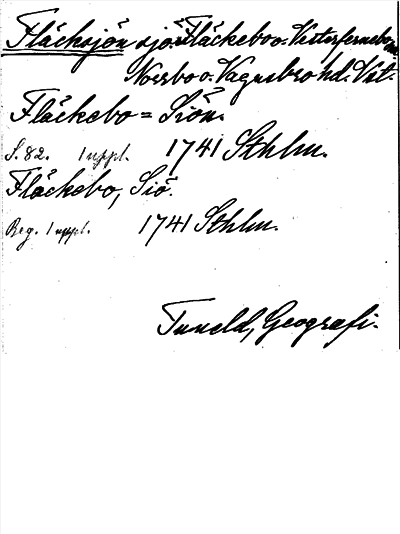 Fläcksjön sjö i Fläckebo o. Västerfernebo snr
Norrbo o. Vagnsbro hd. Vst.
Fläckebo = Siön.
S. 82. 1 uppl. 1741 Sthlm.
Fläckebo, Siö.
Reg. 1 uppl. 1741 Sthlm.
Tuneld, Geografi.